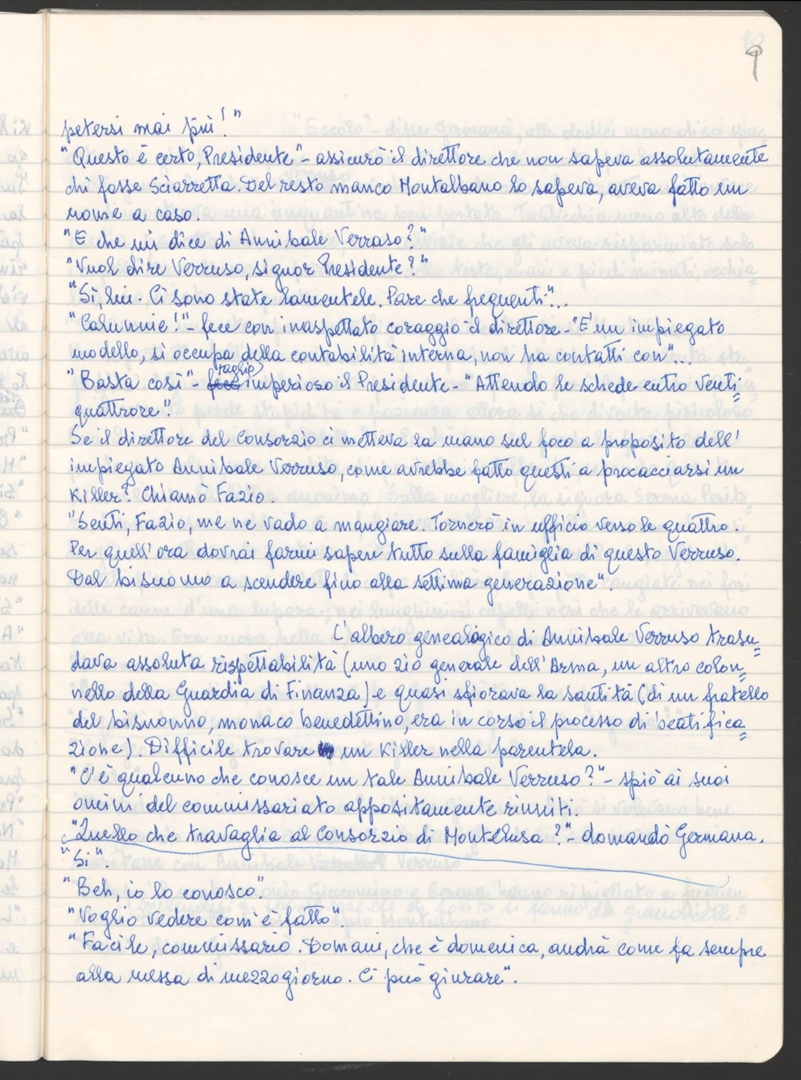 9
petersi mai più!"
"Questo è certo, Presidente" - assicurò il direttore che non sapeva assolutamente
chi fosse Sciarretta. Del resto manco Montalbano lo sapeva, aveva fatto un
nome a caso.
"E che mi dice di Annibale Verraso?"
"Vuol dire Verruso, signor Presidente?"
"Sì, lui. Ci sono state lamentele. Pare che frequenti"...
"Calunnie!" - fece con inaspettato coraggio il direttore - "È un impiegato
modello, si occupa della contabilità interna, non ha contatti con"...
raglió
"Basta così" - fece imperioso il Presidente - "Attendo le schede entro venti=
quattrore".
Se il direttore del Consorzio ci metteva la mano sul foco a proposito dell'
impiegato Annibale Verruso, come avrebbe fatto questi a procacciarsi un
killer? Chiamò Fazio.
"Senti, Fazio, me ne vado a mangiare. Tornerò in ufficio verso le quattro.
Per quell'ora dovrai farmi sapere tutto sulla famiglia di questo Verruso.
Dal bisnonno a scendere fino alla settima generazione".
L'albero genealogico di Annibale Verruso trasu=
dava assoluta rispettabilità (uno zio generale dell'Arma, un altro colon=
nello della Guardia di Finanza) e quasi sfiorava la santità (di un fratello
del bisnonno, monaco benedettino, era in corso il processo di beatifica=
zione). Difficile trovare un killer nella parentela.
"C'è qualcuno che conosce un tale Annibale Verruso?" - spiò ai suoi
omini del commissariato appositamente riuniti.
"Quello che travaglia al Consorzio di Montelusa?" - domandò Germanà.
"Sì"
"Beh, io lo conosco".
"Voglio vedere com'è fatto".
"Facile, commissario. Domani, che è domenica, andrà come fa sempre
alla messa di mezzogiorno. Ci può giurare".